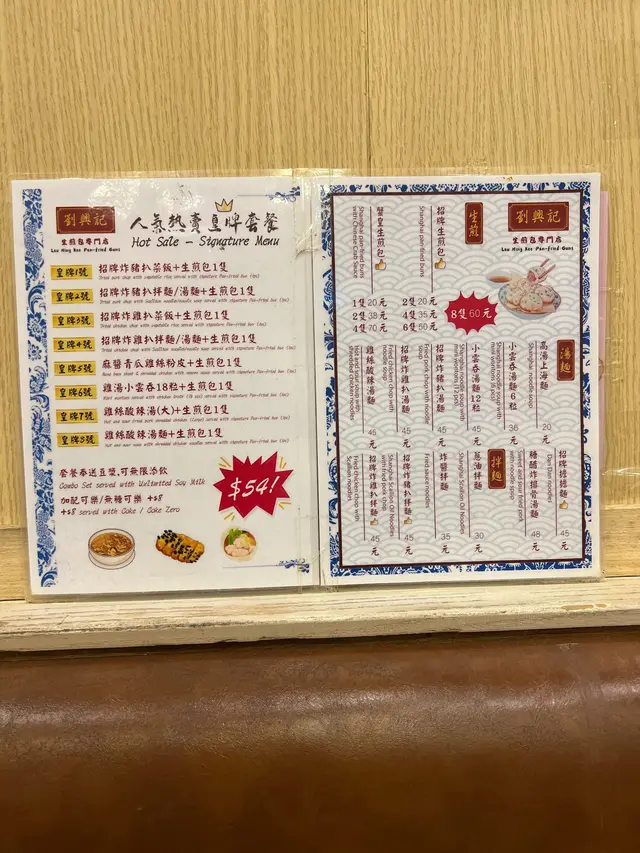 劉興記
生煎包專門店
Lau Hing Kee Pan-fried Buns
人氣熱賣皇牌套餐
Hot Sale - Signature Menu
皇牌1號 招牌炸豬扒菜飯+生煎包1隻
皇牌2號 招牌炸豬扒拌麵/湯麵+生煎包1隻
皇牌3號 招牌炸雞扒菜飯+生煎包1隻
皇牌4號 招牌炸雞扒拌麵/湯麵+生煎包1隻
皇牌5號 麻醬青瓜雞絲粉皮+生煎包1隻
皇牌6號 雞湯小雲吞18粒+生煎包1隻
皇牌7號 雞絲酸辣湯(大)+生煎包1隻
皇牌8號 雞絲酸辣湯麵+生煎包1隻
套餐奉送豆漿,可無限添飲
Combo Set served with Unlimited Soy Milk
加配可樂/無糖可樂 +$8
+$8 served with Coke / Coke Zero
$54!
劉興記
生煎包專門店
Lau Hing Kee Pan-fried Buns
生煎
招牌生煎包
Shanghai pan-fried buns
2隻 20元
4隻 35元
6隻 50元
8隻 60元
蟹皇生煎包
Shanghai pan-fried buns with Chinese Crab Sauce
1隻 20元
2隻 38元
4隻 70元
湯麵
高湯上海麵 20元
Shanghai noodle soup
小雲吞湯麵6粒 36元
小雲吞湯麵12粒 45元
招牌炸豬扒湯麵 45元
Fried pork chop with noodle soup
招牌炸雞扒湯麵 45元
Fried chicken chop with noodle soup
雞絲酸辣湯麵 45元
Hot and sour soup with shredded chicken noodles
招牌擔擔麵 45元
Dan Dan noodles
糖醋炸排骨湯麵 48元
Sweet and sour fried pork with noodle soup
拌麵
蔥油拌麵 30元
Shanghai Scallion Oil Noodles
炸醬拌麵 35元
Fried sauce noodles
招牌炸豬扒拌麵 45元
Shanghai Scallion Oil Noodles with fried pork chop
招牌炸雞扒拌麵 45元
Fried chicken chop with Scallion noodles